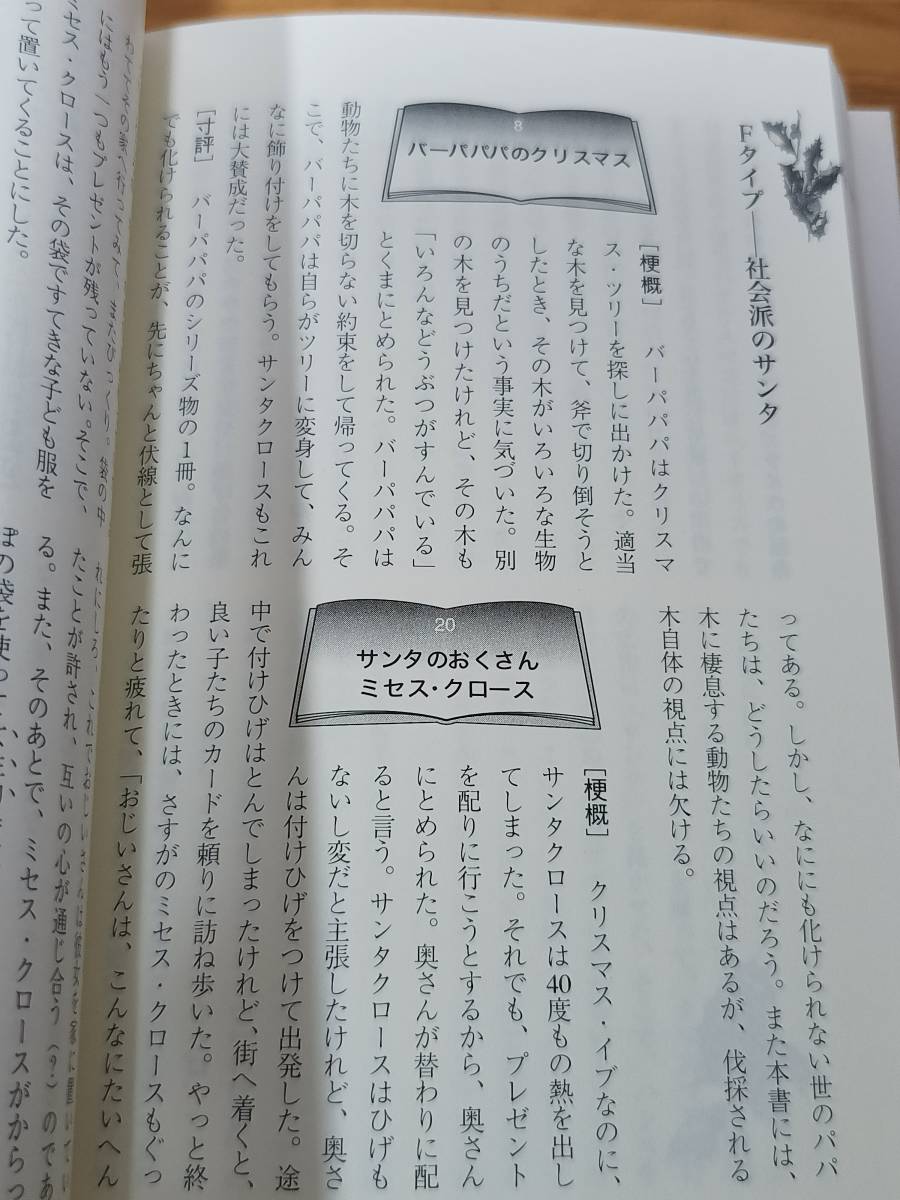 Fタイプ――社会派のサンタ
8
バーパパパのクリスマス
[梗概]　バーパパパはクリスマ
ス・ツリーを探しに出かけた。適当
な木を見つけて、斧で切り倒そうと
したとき、その木がいろいろな生物
のうちだという事実に気づいた。別
の木を見つけたけれど、その木も
「いろんなどうぶつがすんでいる」
とくまにとめられた。バーパパパは
動物たちに木を切らない約束をして帰ってくる。そ
こで、バーパパパは自らがツリーに変身して、みん
なに飾り付けをしてもらう。サンタクロースもこれ
には大賛成だった。
[寸評]　バーパパパのシリーズ物の1冊。なんに
でも化けられることが、先にちゃんと伏線として張
ってある。しかし、なににも化けられない世のパパ
たちは、どうしたらいいのだろう。また本書には、
木に棲息する動物たちの視点はあるが、伐採される
木自体の視点には欠ける。
20
サンタのおくさん
ミセス・クロース
[梗概]　クリスマス・イブなのに、
サンタクロースは40度もの熱を出し
てしまった。それでも、プレゼント
を配りに行こうとするから、奥さん
にとめられた。奥さんが替わりに配
ると言う。サンタクロースはひげも
ないし変だと主張したけれど、奥さ
んは付けひげをつけて出発した。途
中で付けひげはとんでしまったけれど、街へ着くと、
良い子たちのカードを頼りに訪ね歩いた。やっと終
わったときには、さすがのミセス・クロースもぐっ
たりと疲れて、「おじいさんは、こんなにたいへん
わててその家へ行ってみて、またびっくり。袋の中
にはもう一つもプレゼントが残っていない。そこで、
ミセス・クロースは、その袋ですてきな子ども服を
って置いてくることにした。
れにしろ、これでおじいさんは彼女を家に置いてい
たことが許され、互いの心が通じ合う(?)のであ
る。また、そのあとで、ミセス・クロースがからっ
ぽの袋を使って